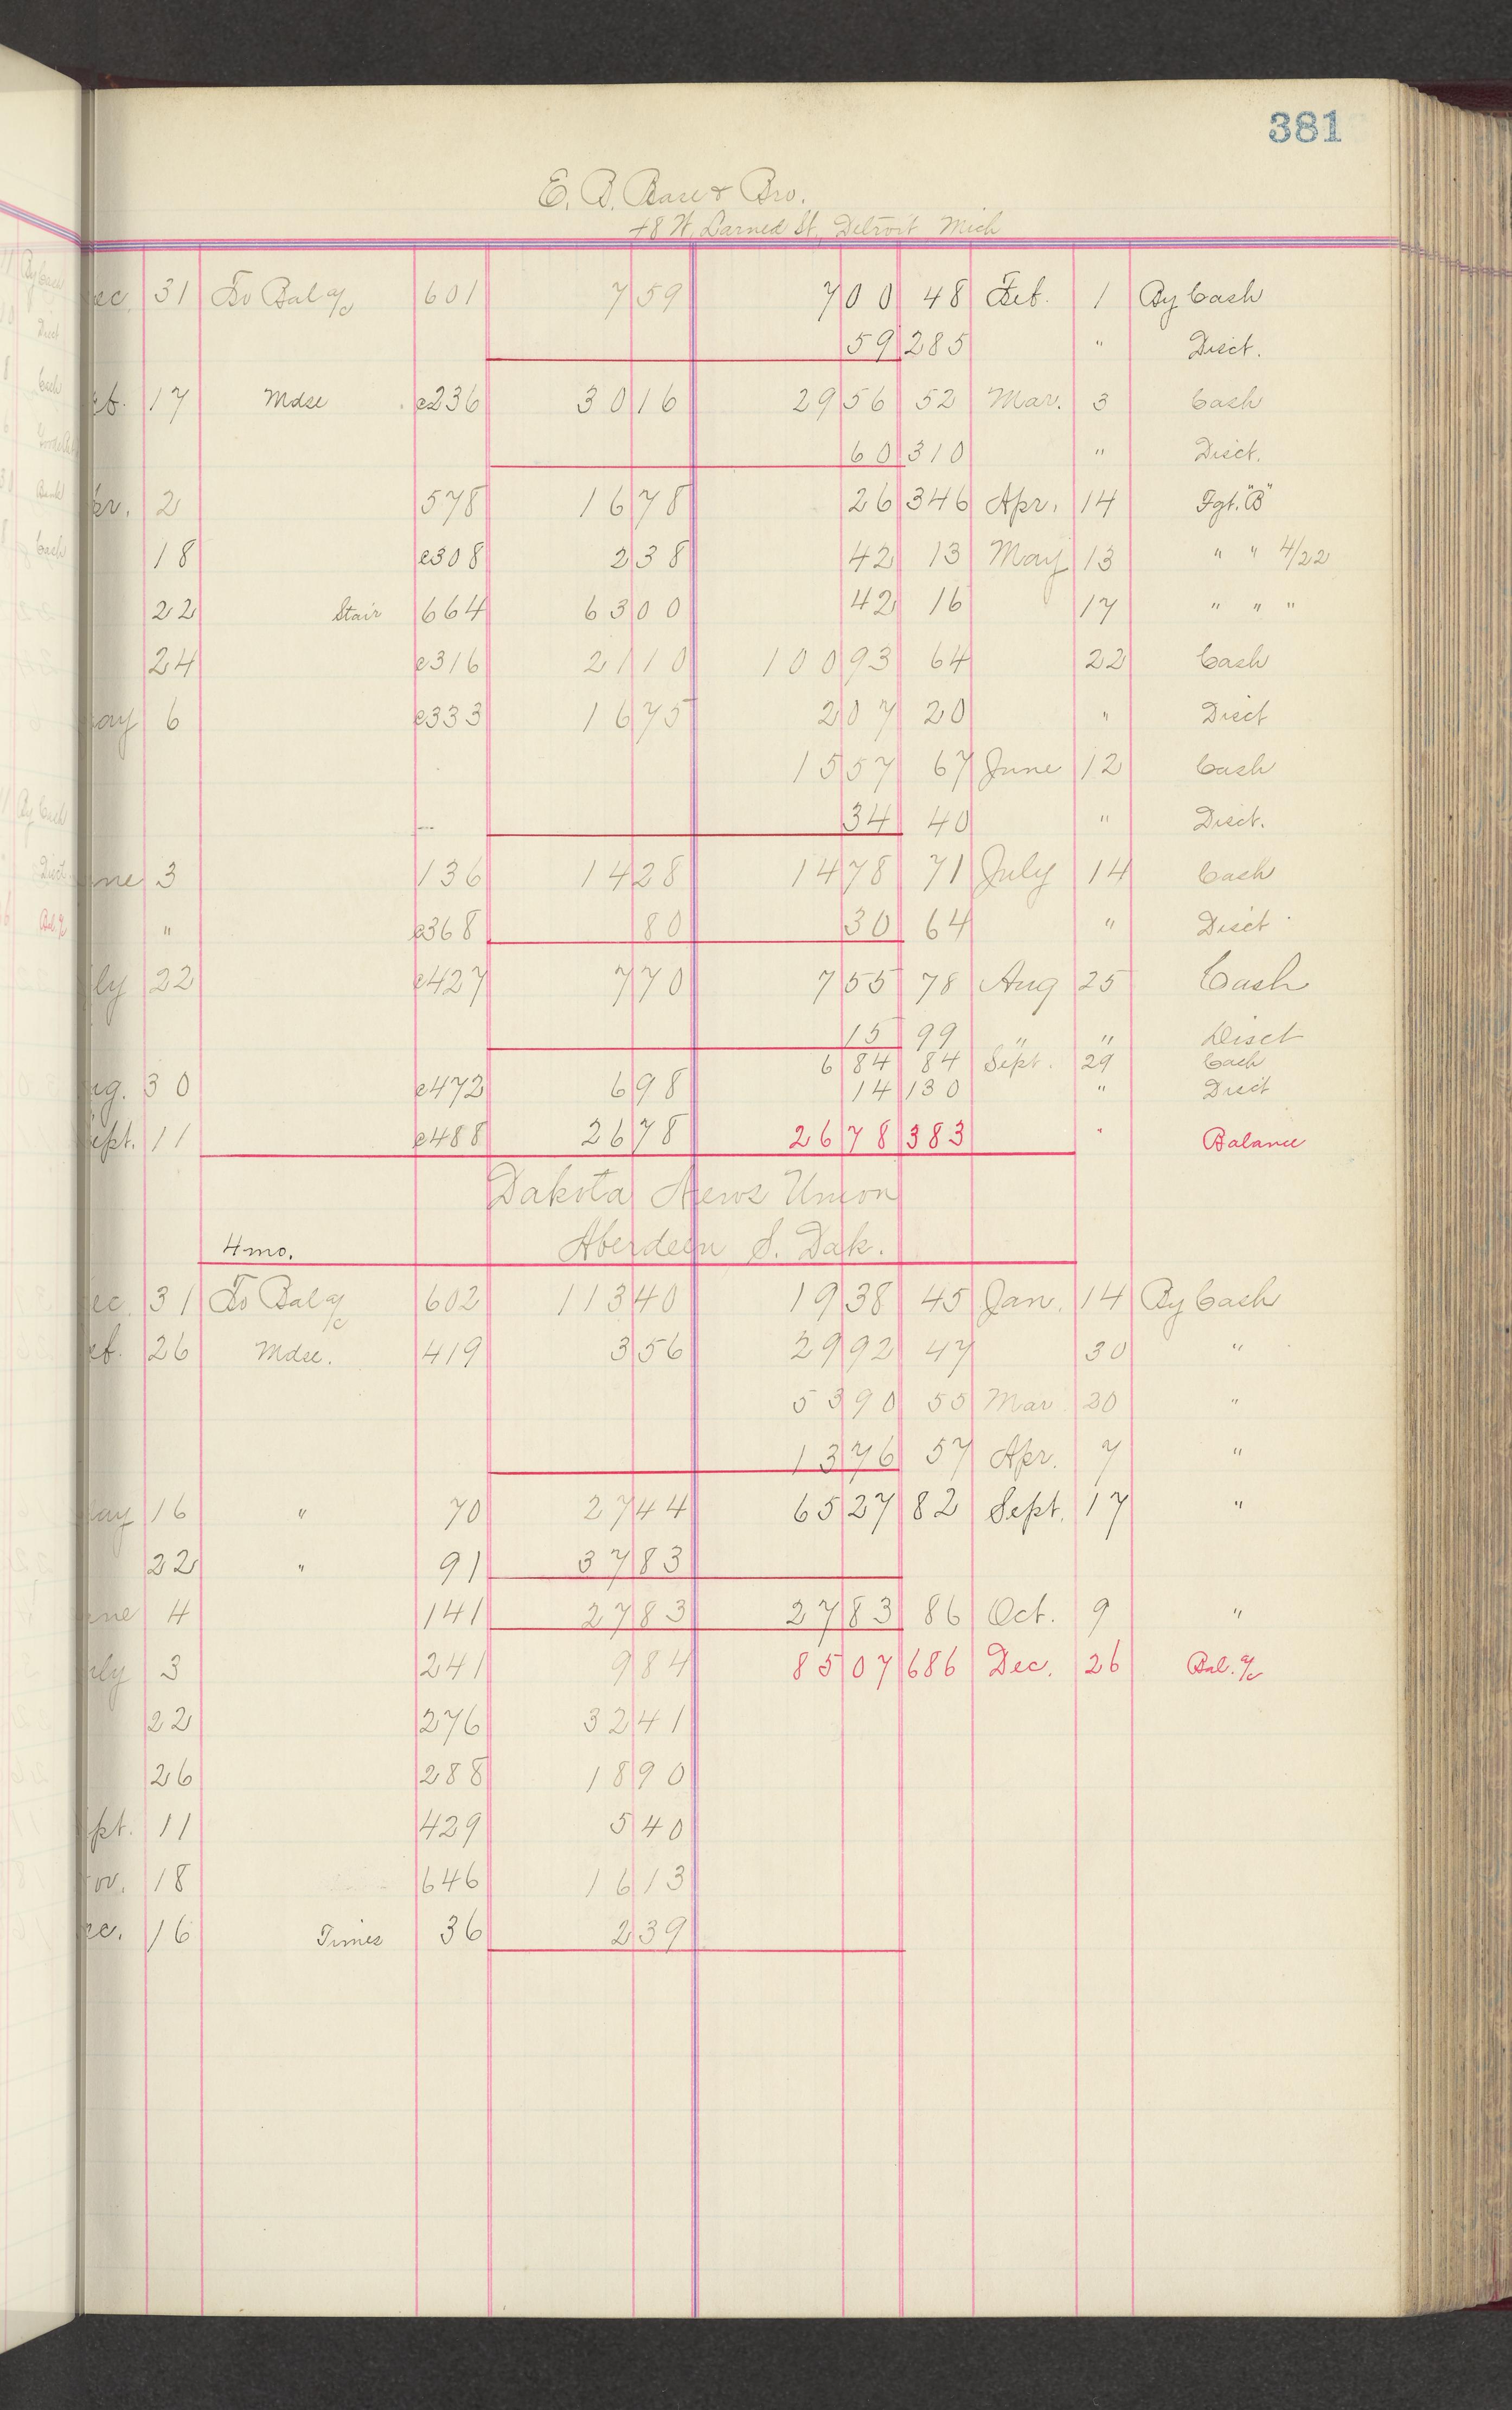 381
E. B. & Bro.
48 W. Larned St. Detroit Mich
ec. 31 To Bal a/c 601 7 59 7 00 48 Feb. 1 By Cash
59 285 " Disct.
eb. 17 Mdse c236 30 16 29 56 52 Mar. 3 Cash
60 310 " Disct.
pr. 2 578 16 78 26 346 Apr. 14 Fgt. "B"
18 c308 2 38 42 13 May 13 " " 4/22
22 Stair 664 63 00 42 16 17 " " "
24 c316 21 10 100 93 64 22 Cash
ay 6 c333 16 75 2 07 20 " Disct
15 57 67 June 12 Cash
34 40 " Disct.
ne 3 136 14 28 14 78 71 July 14 Cash
" c368 80 30 64 " Disct
ly 22 c427 7 70 7 55 78 Aug 25 Cash
15 99 " " Disct
6 84 84 Sept. 29 Cash
ug. 30 c472 6 98 14 130 " Disct
ept. 11 c488 26 78 26 78 383 " Balance
Dakota News Union
4 mo. Aberdeen S. Dak.
ec. 31 To Bal a/c 602 113 40 19 38 45 Jan. 14 By Cash
eb. 26 Mdse. 419 3 56 29 92 47 30 "
53 90 55 Mar. 20 "
13 76 57 Apr. 7 "
ay 16 " 70 27 44 65 27 82 Sept. 17 "
22 " 91 37 83
ne 4 141 27 83 27 83 86 Oct. 9 "
uly 3 241 9 84 85 07 686 Dec. 26 Bal. a/c
22 276 32 41
26 288 18 90
pt. 11 429 5 40
ov. 18 646 16 13
ec. 16 Times 36 2 39